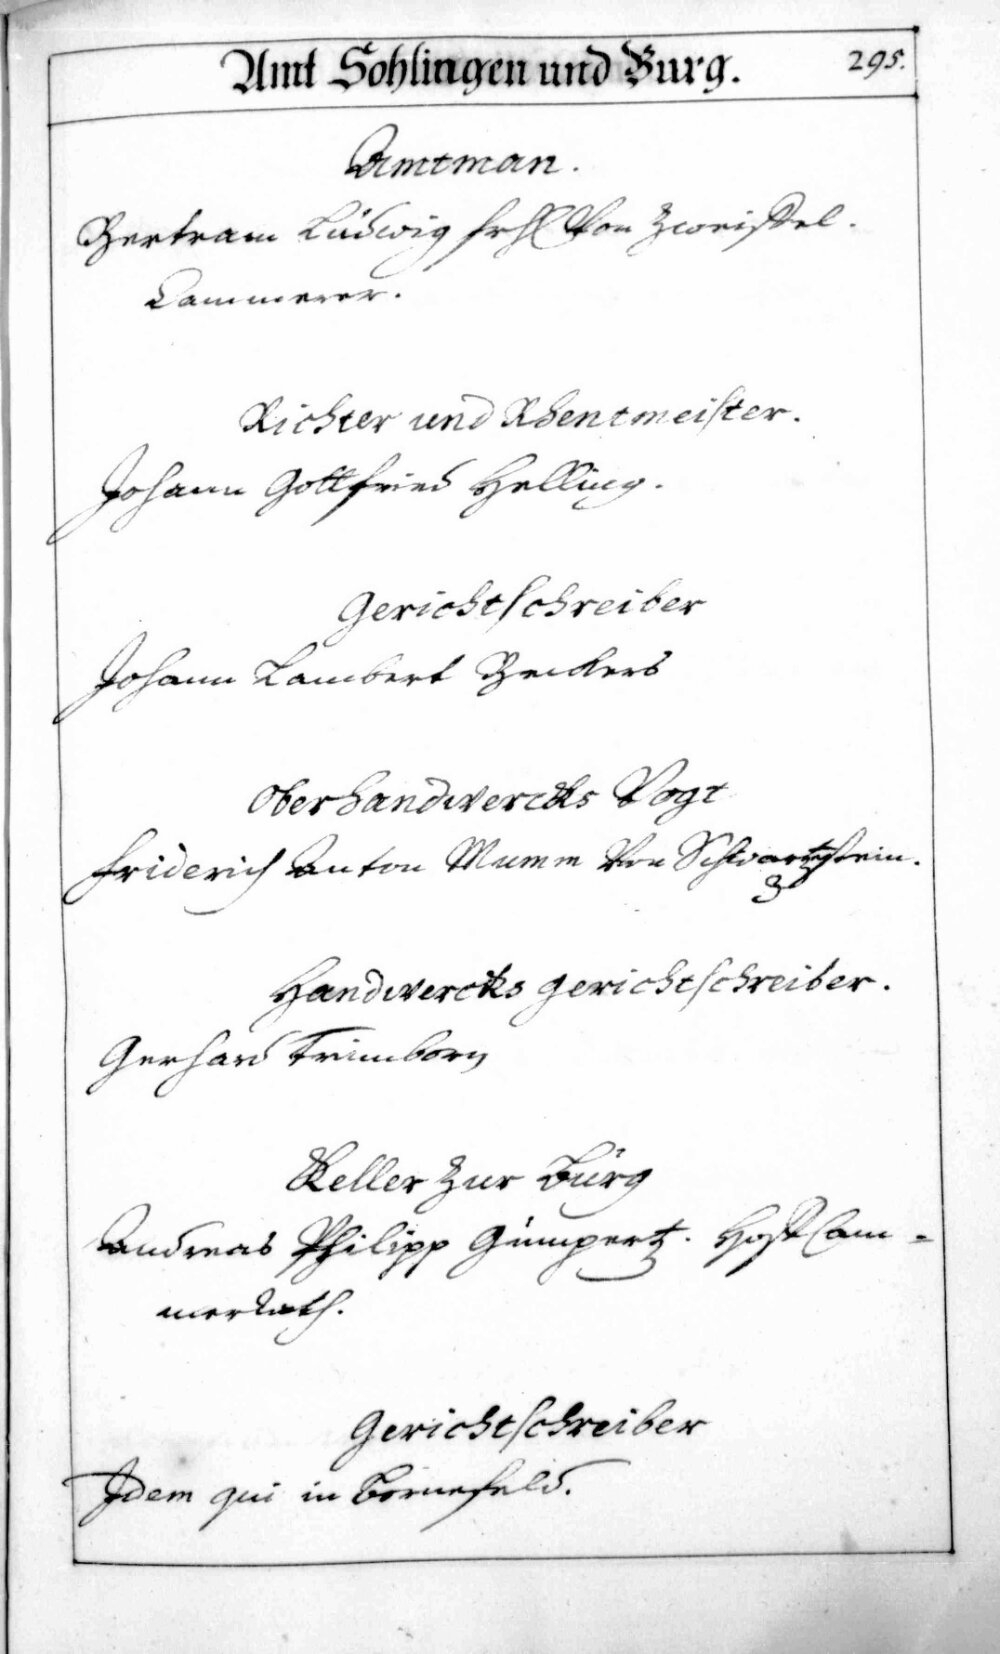 Amt Sohlingen und Burg.
295.
Amtman.
Bertram Lüdwig frh Von Zweiffel.
Cammerer.
Richter und Rhentmeister.
Johann Gottfried Helling.
Gerichtschreiber
Johann Lambert Beckers
Oberhandwercks Vogt
Friderich Anton Mumm Von Schwartzstein.
Handwercks gerichtschreiber.
Gerhard Trimborn
Keller zur Bürg
Andreas Philipp Gümpertz. Hoff Cam-
merRath.
Gerichtschreiber
Idem qui in Bornefeld.